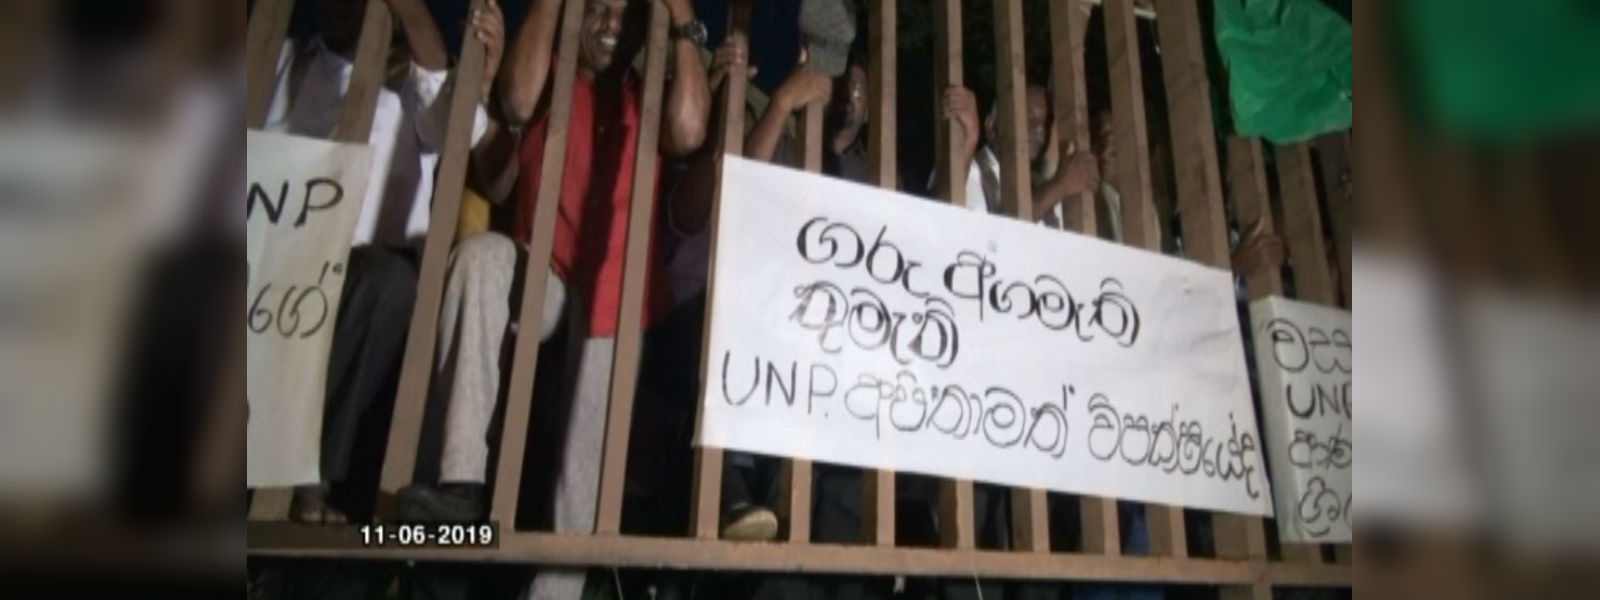 NP
ගරු අගමැති
තුමැති
UNP. අපිතාමත් විපක්ෂයේද
UN
11-06-2019